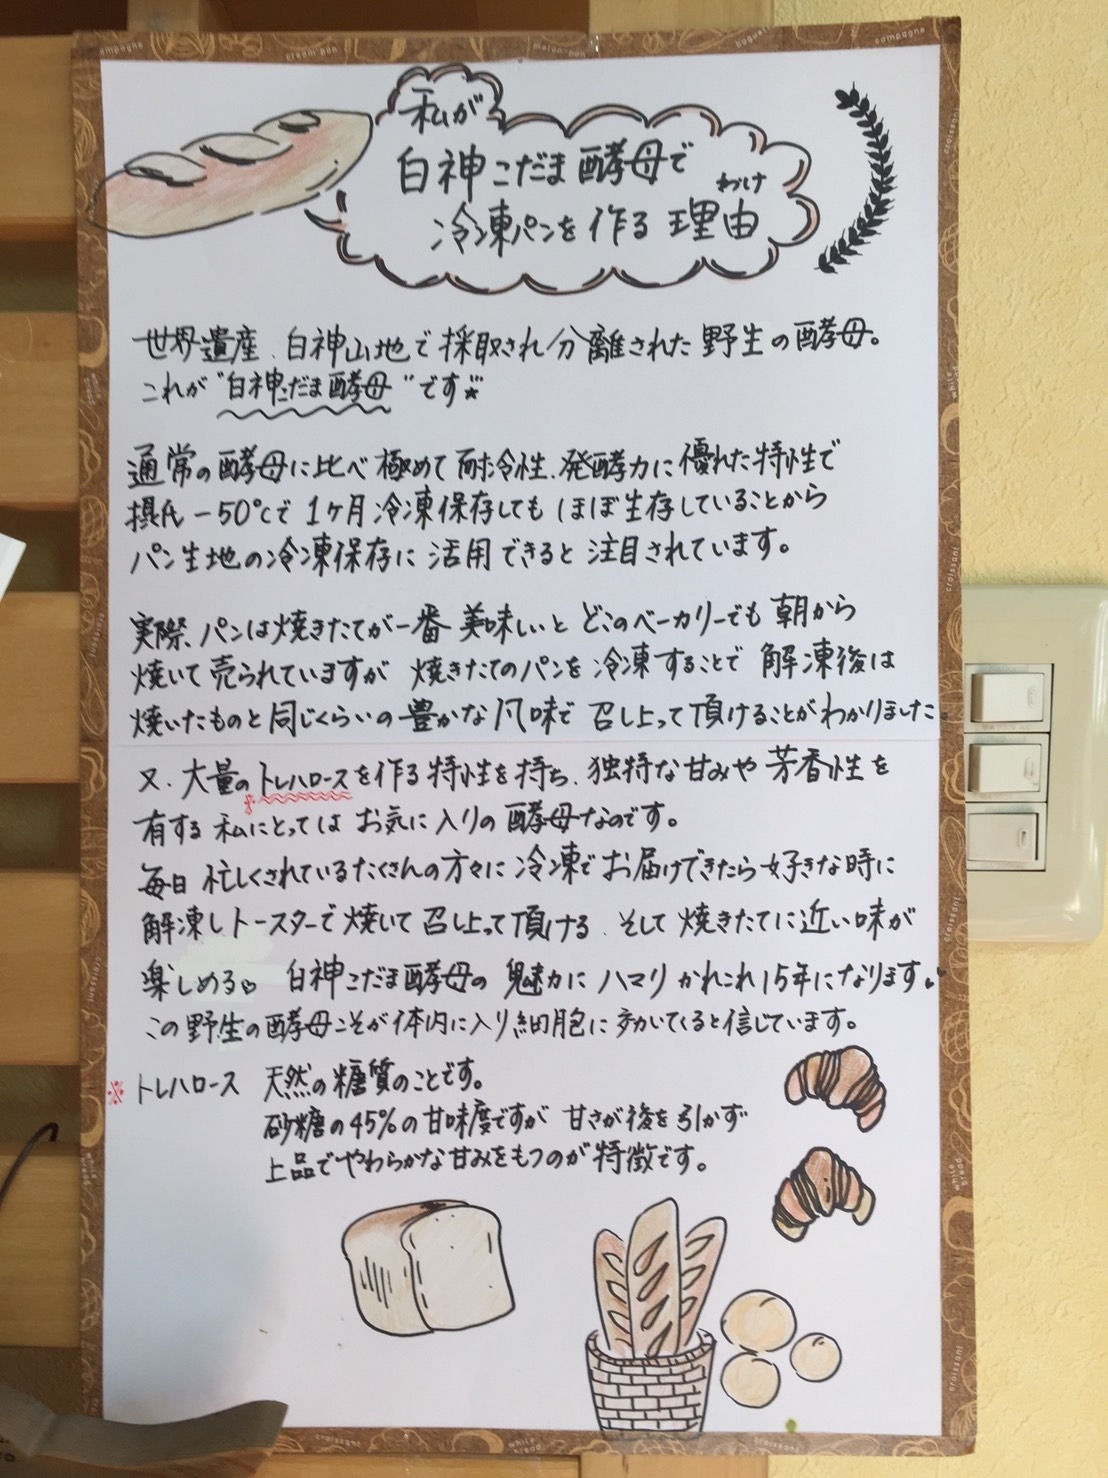 私が
白神こだま酵母で
わけ
冷凍パンを作る理由
世界遺産、白神山地で採取され分離された野生の酵母。
これが"白神こだま酵母"です☆
通常の酵母に比べ極めて耐冷性、発酵力に優れた特性で
摂氏-50℃で1ヶ月冷凍保存してもほぼ生存していることから
パン生地の冷凍保存に活用できると注目されています。
実際、パンは焼きたてが一番美味しいとどこのベーカリーでも朝から
焼いて売られていますが焼きたてのパンを冷凍することで解凍後は
焼いたものと同じくらいの豊かな風味で召し上って頂けることがわかりました。
又、大量のトレハロースを作る特性を持ち、独特な甘みや芳香性を
※
有する私にとってはお気に入りの酵母なのです。
毎日忙しくされているたくさんの方々に冷凍でお届けできたら好きな時に
解凍しトースターで焼いて召し上って頂ける、そして焼きたてに近い味が
楽しめる♡ 白神こだま酵母の魅力にハマりかれこれ15年になります♥
この野生の酵母こそが体内に入り細胞に効いてくると信じています。
※トレハロース 天然の糖質のことです。
砂糖の45%の甘味度ですが甘さが後を引かず
上品でやわらかな甘みをもつのが特徴です。
campagne
cream pan
melon pan
baguette
campagne
croissant
white bread
croissant
white bread
croissant